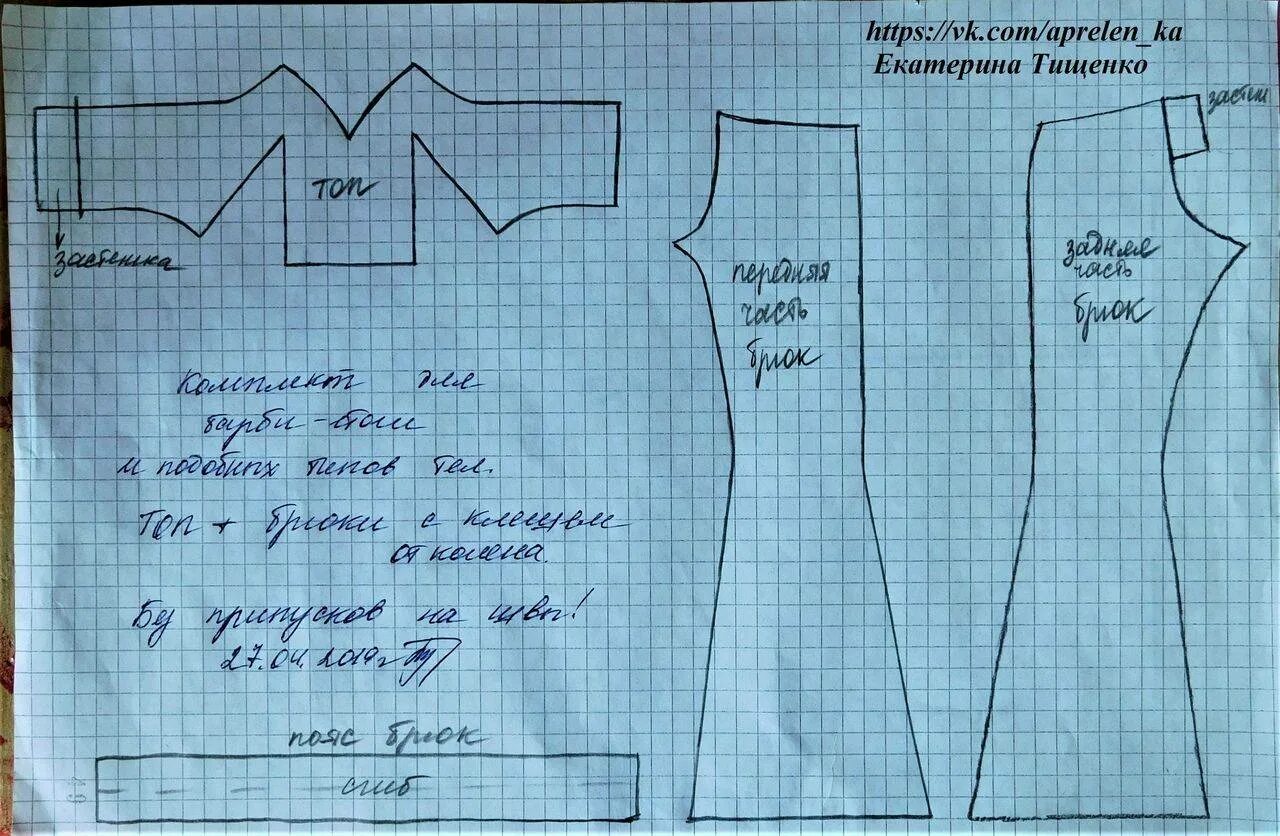 https://vk.com/aprelen_ka
Екатерина Тищенко
застеж
топ
застежка
передняя
часть
брюк
задняя
часть
брюк
Комплект для
барби-йоги
и подобных типов тел.
Топ + брюки с клешем
от колена.
Без припусков на швы!
27.04.2019г
пояс брюк
сгиб